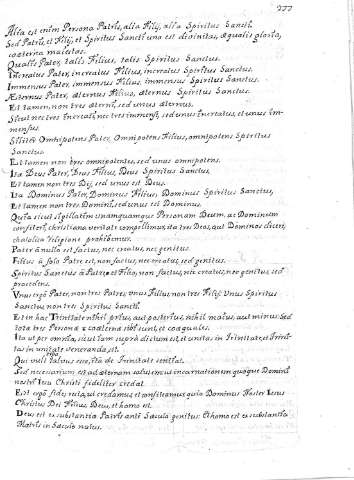 Alia est enim Persona Patris, alia Filij, alia Spiritus Sancti.
Sed Patris, et Filij, et Spiritus Sancti una est divinitas, æqualis gloria,
coæterna maiestas.
Qualis Pater, talis Filius, talis Spiritus Sanctus.
Increatus Pater, increatus Filius, increatus Spiritus Sanctus.
Immensus Pater, immensus Filius, immensus Spiritus Sanctus.
Æternus Pater, æternus Filius, æternus Spiritus Sanctus.
Et tamen non tres æterni, sed unus æternus.
Sicut nec tres increati, nec tres immensi, sed unus increatus, et unus im-
mensus.
Similiter Omnipotens Pater, Omnipotens Filius, omnipotens Spiritus
Sanctus.
Et tamen non tres omnipotentes, sed unus omnipotens.
Ita Deus Pater, Deus Filius, Deus Spiritus Sanctus.
Et tamen non tres Dij, sed unus est Deus.
Ita Dominus Pater, Dominus Filius, Dominus Spiritus Sanctus,
Et tamen non tres Domini, sed unus est Dominus.
Quia sicut singillatim unamquamque Personam Deum, ac Dominum
confiteri, christiana veritate compellimur, ita tres Deos, aut Dominos dicere,
chatolica religione prohibemur.
Pater a nullo est factus, nec creatus, nec genitus.
Filius à solo Patre est, non factus, nec creatus, sed genitus.
Spiritus Sanctus à Patre et Filio, non factus, nec creatus, nec genitus, sed
procedens.
Vnus ergo Pater, non tres Patres, Vnus Filius, non tres Filij: Vnus Spiritus
Sanctus, non tres Spiritus Sancti.
Et in hac Trinitate nihil prius, aut posterius, nihil maius, aut minus: Sed
tota tres Personæ coæternæ sibi sunt, et coæquales.
Ita ut per omnia, sicut iam supra dictum est, et unitas in Trinitate, et Trini-
tas in unitate veneranda sit.
ergo
Qui vult salvus esse, ita de Trinitate sentiat.
Sed necessarium est ad æternam salutem, ut incarnationem quoque Domini
nostri Iesu Christi fideliter credat.
Est ergò fides recta, ut credamus, et confiteamur, quia Dominus Noster Iesus
Christus Dei Filius, Deus, et homo est.
Deus est ex substantia Patris antè Sæcula genitus: Et homo est ex substantia
Matris in Sæculo natus.